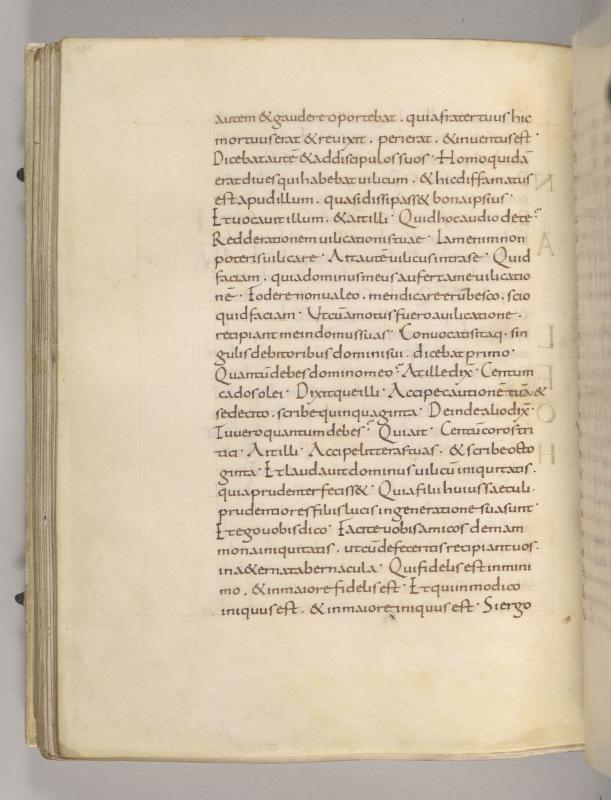 autem & gaudere oportebat . quia frater tuus hic
mortuus erat & reuixit . perierat . & inuentus est ·
Dicebat autē & ad discipulos suos · Homo quidā
erat diues qui habebat uilicum . & hic diffamatus
est apud illum . quasi dissipass& bona ipsius ·
Et uocauit illum . & ait illi · Quid hoc audio de te ?
Redde rationem uilicationis tuae · Iam enim non
poteris uilicare · Ait autē uilicus intra se · Quid
faciam . quia dominus meus aufert a me uilicatio
nē · Fodere non ualeo . mendicare erubesco . scio
quid faciam · Ut cū amotus fuero a uilicatione .
recipiant me in domus suas · Conuocatis itaq . sin
gulis debitoribus domini sui . dicebat primo ·
Quantū debes domino meo ? At ille dix̄ · Centum
cados olei · Dixitque illi · Accipe cautionē tuā · &
sede cito . scribe quinquaginta · Deinde alio dix̄ ·
Tu uero quantum debes ? Qui ait · Centū coros tri
tici · Ait illi · Accipe litteras tuas . & scribe octo
ginta · Et laudauit dominus uilicū iniquitatis .
quia prudenter feciss& · Quia filii huius saeculi .
prudentiores filiis lucis in generatione sua sunt ·
Et ego uobis dico · Facite uobis amicos de mam
mona iniquitatis . ut cū defeceritis recipiant uos .
in a&erna tabernacula · Qui fidelis est in mini
mo . & in maiore fidelis est · Et qui in modico
iniquus est . & in maiore iniquus est · Si ergo